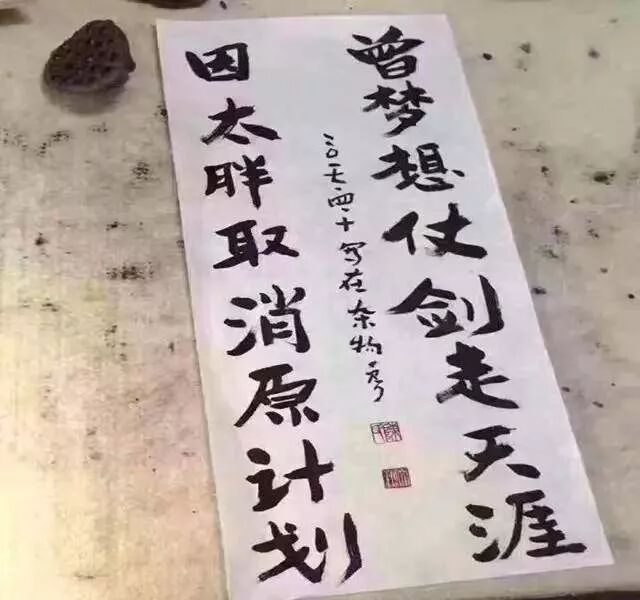 曾梦想仗剑走天涯
因太胖取消原计划
二〇一七四十写在杂物房